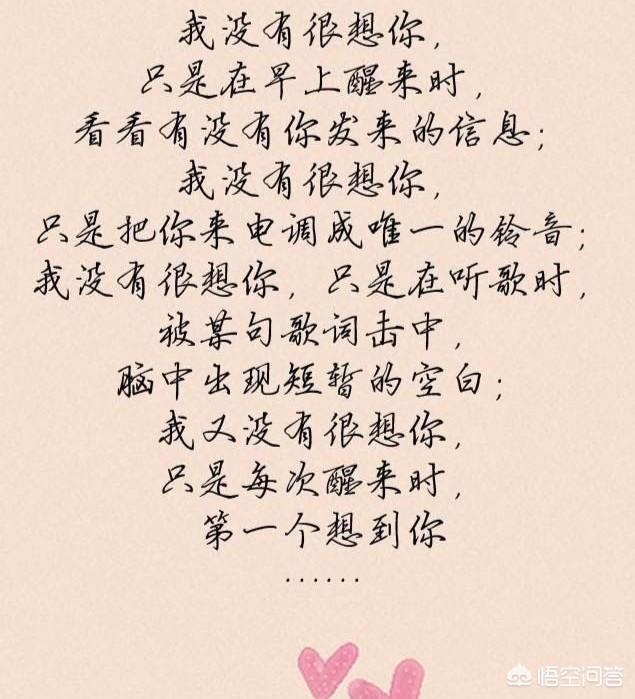 我没有很想你，
只是在早上醒来时，
看看有没有你发来的信息；
我没有很想你，
只是把你来电调成唯一的铃音；
我没有很想你，只是在听歌时，
被某句歌词击中，
脑中出现短暂的空白；
我又没有很想你，
只是每次醒来时，
第一个想到你
······
悟空问答